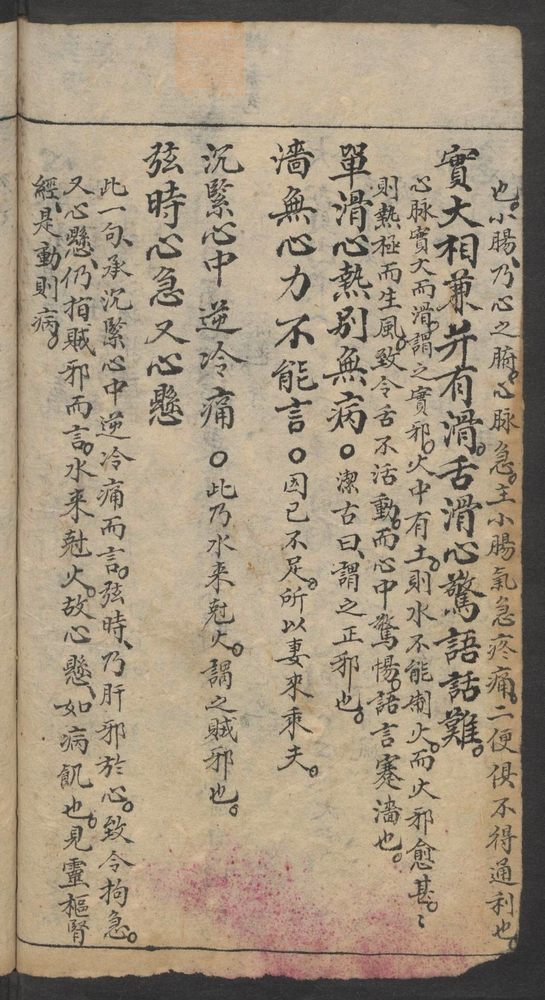 也。小腸、乃心之腑。心脉急。主小腸氣急疼痛。二便俱不得通利也。
實大相兼并有滑。舌滑心驚語話難。
心脉實大而滑。謂之實邪。火中有土。則水不能制火。而火邪愈甚。〻
則熱極而生風。致令舌不活動。而心中驚惕。語言蹇濇也。
單滑心熱别無病。○潔古曰、謂之正邪也。
濇無心力不能言。○因已不足。所以妻來乘夫。
沉緊心中逆冷痛○此乃水來尅火。謂之賊邪也。
弦時心急又心懸
此一句、承沉緊心中逆冷痛而言。弦時、乃肝邪於心。致令拘急。
又心懸、仍指賊邪而言。水來尅火。故心懸、如病飢也。見靈樞腎
經、是動則病。